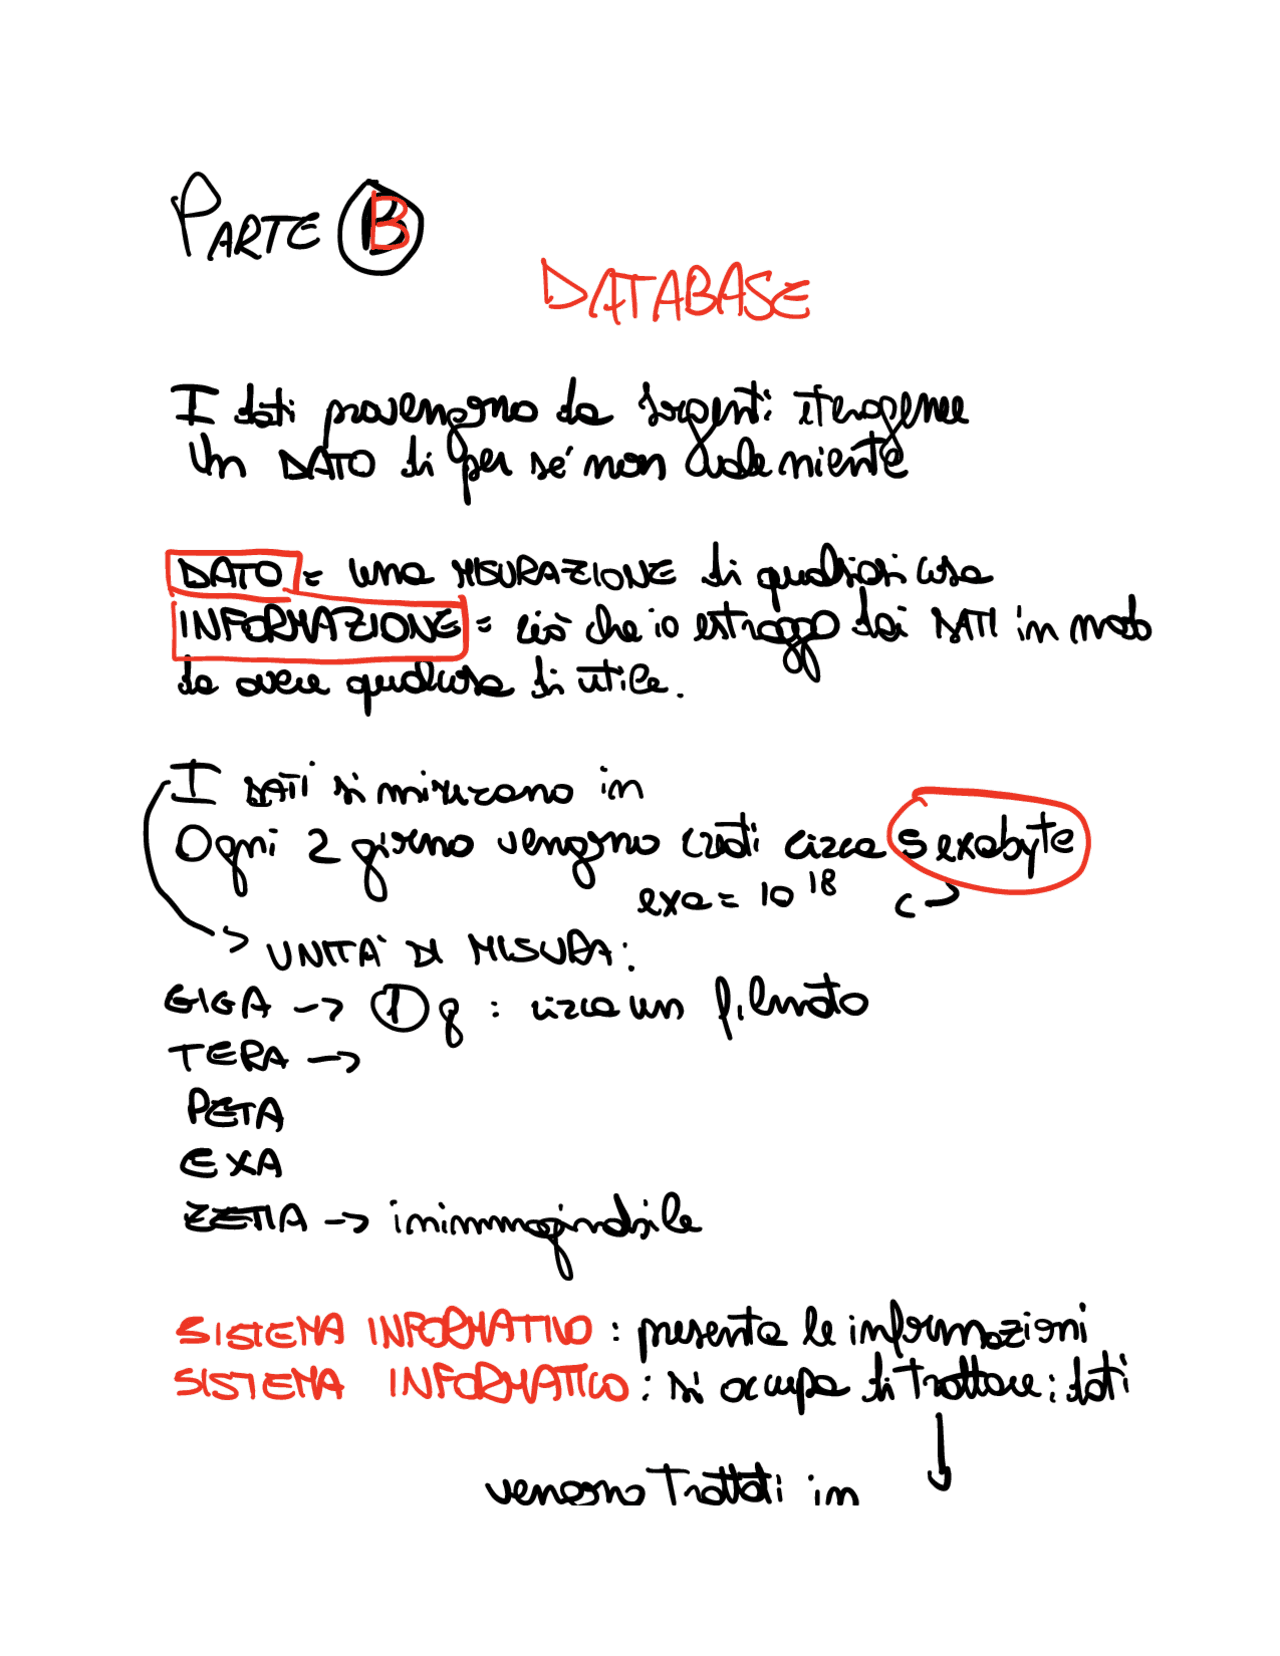 PARTE B
DATABASE
I dati provengono da sorgenti eterogenee
Un DATO di per sé non vale niente
DATO = una MISURAZIONE di qualsiasi cosa
INFORMAZIONE = ciò che io estraggo dai DATI in modo
da avere qualcosa di utile.
I DATI si misurano in
Ogni 2 giorno vengono creati circa 5 exabyte
exa = 10^18
UNITA' DI MISURA:
GIGA -> 1 g : circa un filmato
TERA ->
PETA
EXA
ZETTA -> inimmaginabile
SISTEMA INFORMATIVO : presenta le informazioni
SISTEMA INFORMATICO : si occupa di trattare i dati
vengono trattati in